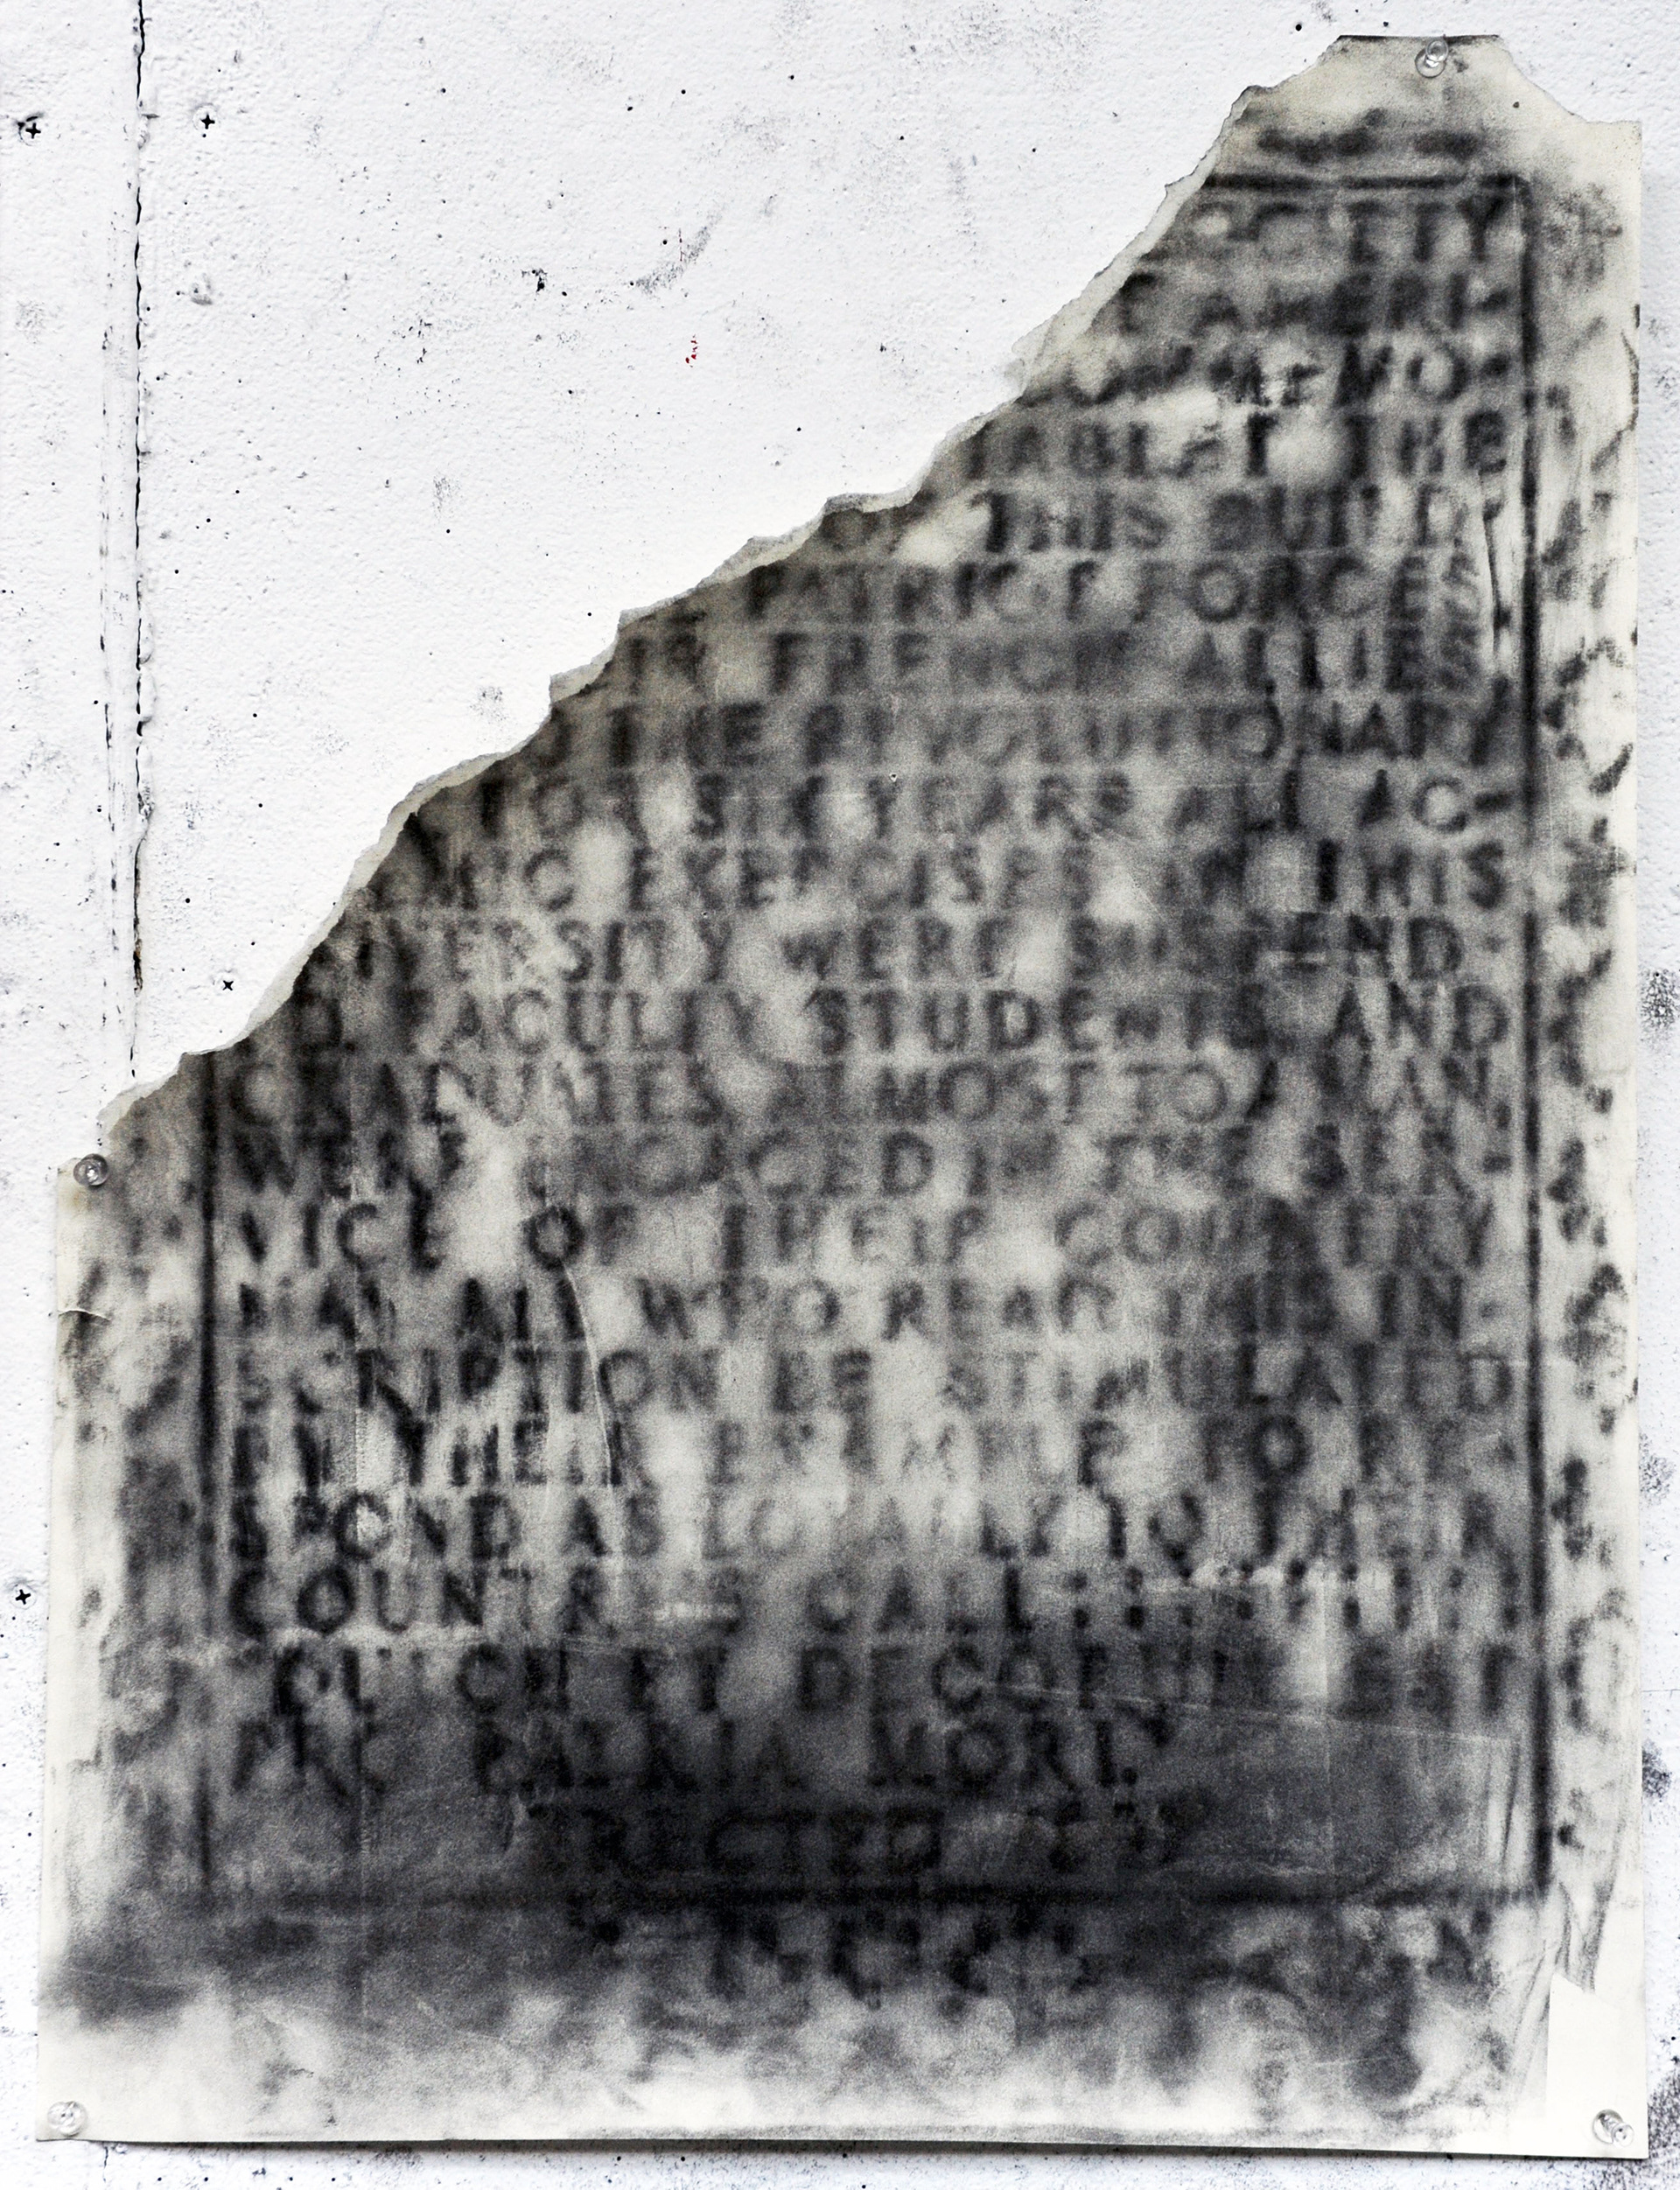 OCIETY
AMERI-
MEMO-
TABLET THE
THIS BUILD-
PATRIOT FORCES
IR FRENCH ALLIES
THE REVOLUTIONARY
SIX YEARS ALL AC-
MIC EXERCISES IN THIS
NIVERSITY WERE SUSPEND-
ED. FACULTY STUDENTS AND
GRADUATES ALMOST TO A MAN
WERE ENGAGED IN THE SER-
VICE OF THEIR COUNTRY
MAY ALL WHO READ THIS IN-
SCRIPTION BE STIMULATED
BY THEIR EXAMPLE TO RE-
SPOND AS LOYALLY TO THEIR
COUNTRY'S CALL
DULCE ET DECORUM EST
PRO PATRIA MORI."
ERECTED